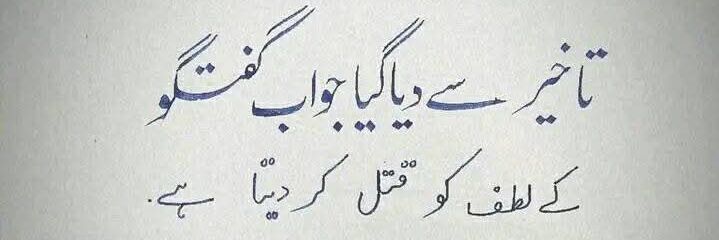 تاخیر سے دیا گیا جواب گفتگو
کے لطف کو قتل کر دیتا ہے.